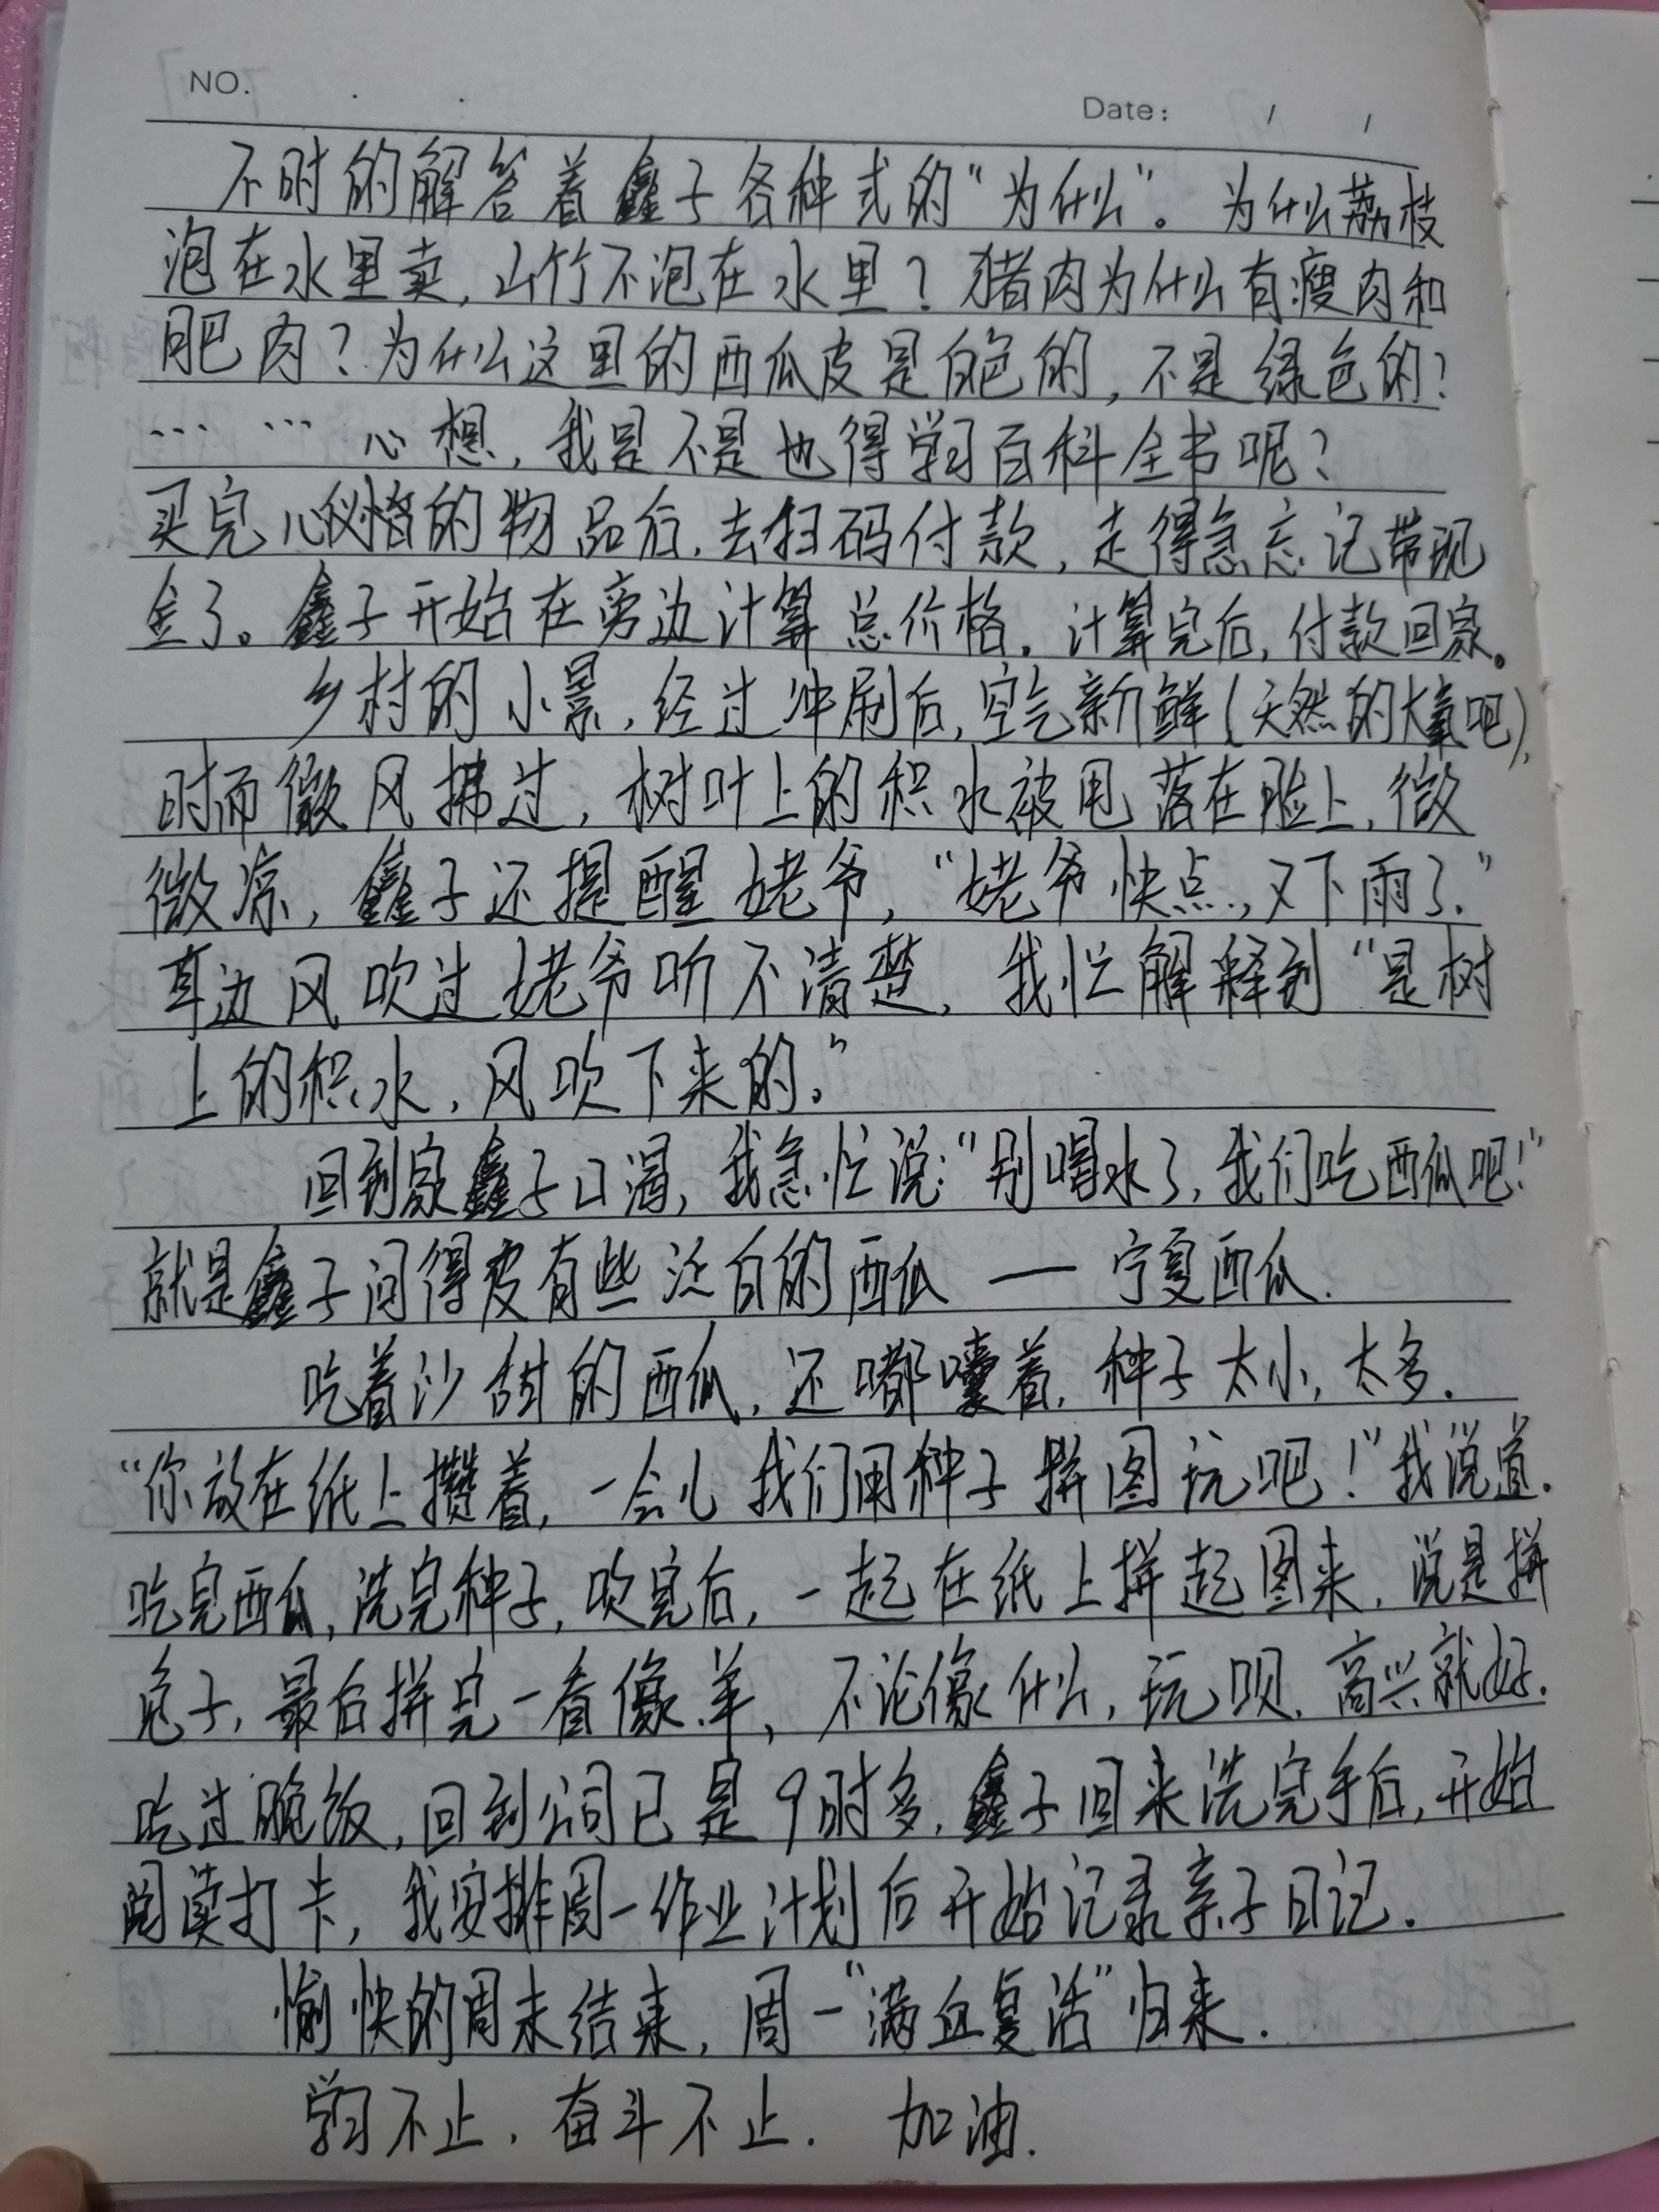 NO.
Date: / /
不时的解答着鑫子各种式的“为什么”。为什么荔枝
泡在水里卖,山竹不泡在水里?猪肉为什么有瘦肉和
肥肉?为什么这里的西瓜皮是白色的,不是绿色的?
…… 心想,我是不是也得学习百科全书呢?
买完心仪的物品后,去扫码付款,走得急忘记带现
金了。鑫子开始在旁边计算总价格。计算完后,付款回家。
乡村的小景,经过冲刷后,空气新鲜(天然的大氧吧),
时而微风拂过,树叶上的积水被甩落在脸上,微
微凉,鑫子还提醒姥爷,“姥爷快点,又下雨了.”
耳边风吹过姥爷听不清楚,我忙解释到“是树
上的积水,风吹下来的。”
回到家鑫子口渴,我急忙说:“别喝水了,我们吃西瓜吧!”
就是鑫子问得皮有些泛白的西瓜 — 宁夏西瓜.
吃着沙甜的西瓜,还嘟囔着,种子太小,太多.
“你放在纸上攒着,一会儿我们用种子拼图玩吧!”我说道.
吃完西瓜,洗完种子,吹完后,一起在纸上拼起图来,说是拼
兔子,最后拼完一看像羊,不论像什么,玩呗,高兴就好.
吃过晚饭,回到公司已是9时多,鑫子回来洗完手后,开始
阅读打卡,我安排周一作业计划后开始记录亲子日记.
愉快的周末结束,周一“满血复活”归来.
学习不止,奋斗不止. 加油.